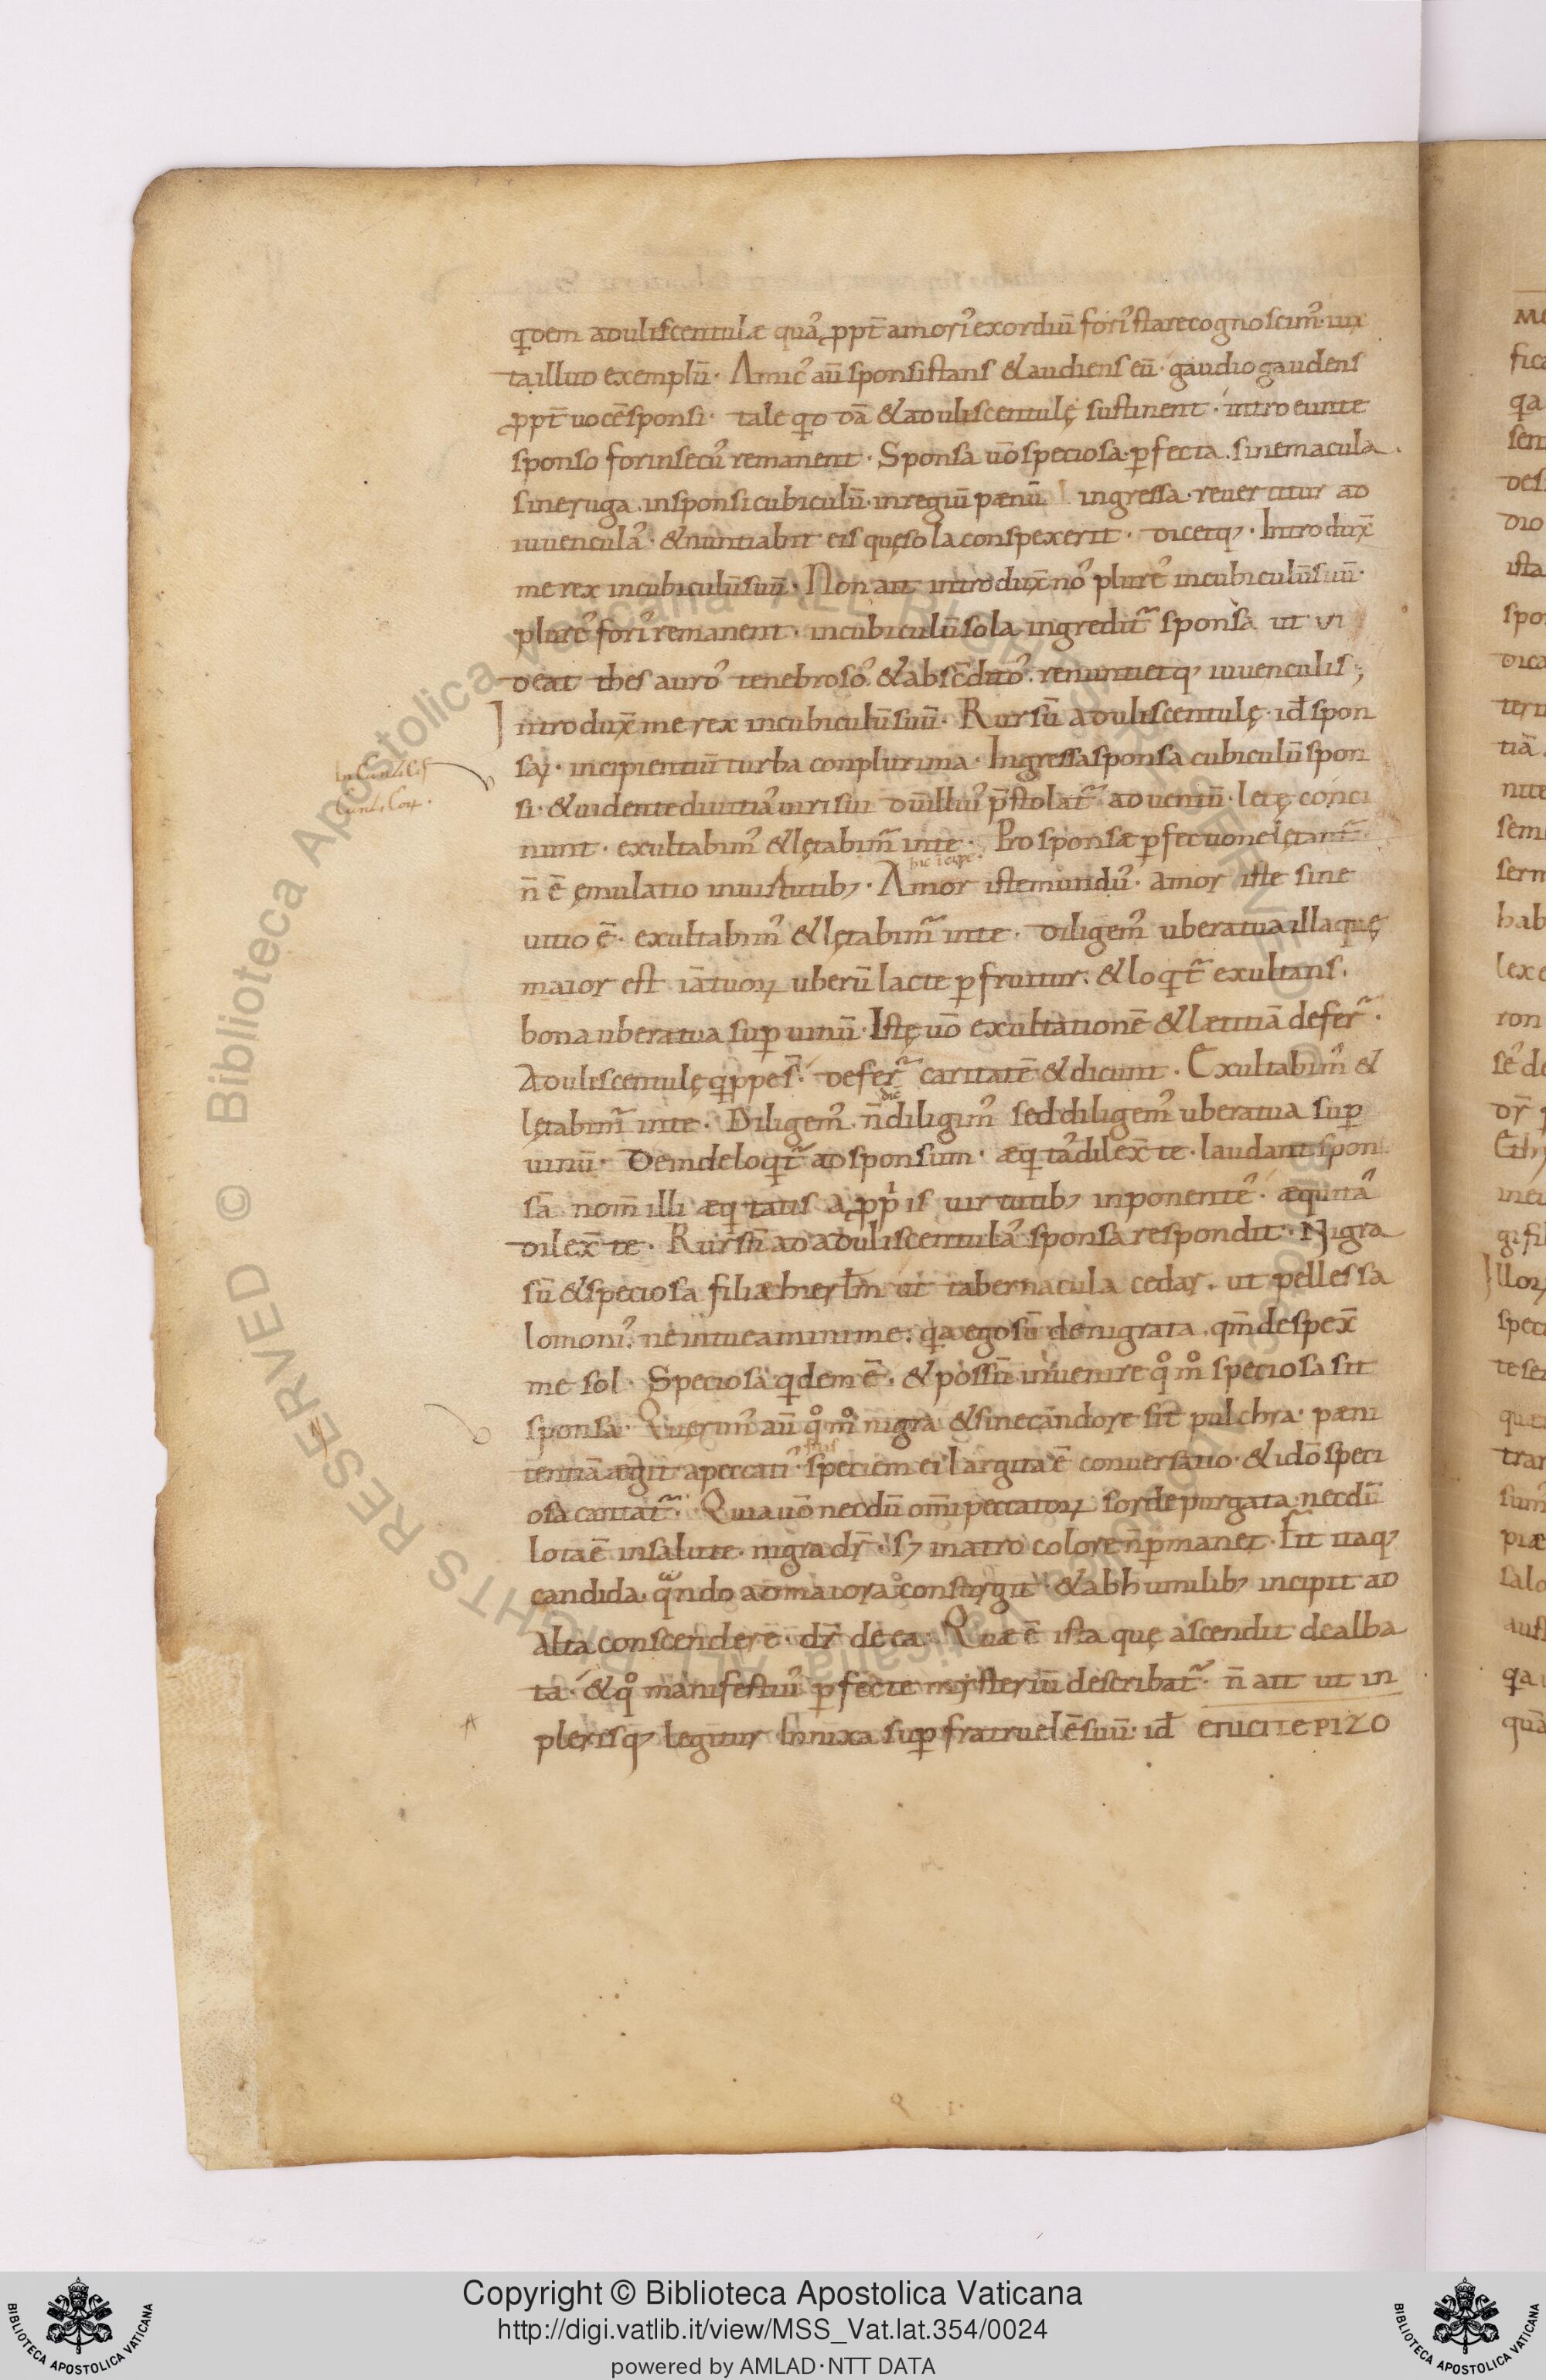 q̄dem aduliscentulæ quas ꝓpt̄ amoris exordiū foris stare cognoscim᾿ iux
ta illud exemplū· Amic᾿ aū sponsi stans & audiens eū· gaudio gaudens
ꝓpt̄ uocē sponsi· tale qd dā & aduliscentulę sustinent· introeunte
sponso forinsecus remanent· Sponsa uō speciosa· ꝑfecta· sine macula·
sine ruga· in sponsi cubiculū· in regiū pænū ingressa· reuertitur ad
iuuenculas· & nuntiabit eis quę sola conspexerit· dicetq;· Introdux̄
me rex in cubiculū suū· Non ait introdux̄ nos plures in cubiculū suū·
plures foris remanent· in cubiculū sola ingredit᾿ sponsa ut ui
deat thesauros tenebrosos· & absc̄ditos· renuntietq; iuuenculis·;
Introdux̄ me rex in cubiculū suū· Rursū aduliscentulę· id̄ spon
sæ· incipientiū turba conplurima· Ingressa sponsa cubiculū spon
si· & uidente diuitias uiri sui dū illius p̄stolat᾿ aduentū· letę conci
nunt· exultabim᾿ & lętabim᾿ in te· Pro sponsæ ꝑfectione lętant᾿
n̄ ē ęmulatio in iustutib;· Amor iste mundus· amor iste sine
uitio ē· exultabim᾿ & lętabim᾿ in te· diligem᾿ ubera tua illa quę
maior est iā tuoꝝ uberū lacte ꝑfruitur· & loqt᾿ exultans·
bona ubera tua suꝑ uinū· Istę uō exultationē & lætitiā defer᾿·
Aduliscentulę q̄ppe s̄· defer᾿ caritatē & dicunt· Exultabim᾿ &
lętabim᾿ in te· Diligem᾿· n̄ diligim᾿ sed diligem᾿ ubera tua suꝑ
uinū· Deinde loqt᾿ ad sponsum· æqtas dilex̄ te· laudant spon
sā nom̄ illi æqtatis a ꝓpis uirtutib; inponentes· æquitas
dilex̄ te· Rursū ad aduliscentulas sponsa respondit· Nigra
sū & speciosa filiæ hierłm ut tabernacula cedar· ut pelles sa
lomonis· ne intueamini me· qa ego sū denigrata· qm̄ despex̄
me sol· Speciosa q̄dem ē· & possū inuenire qº mº speciosa sit
sponsa· Quęrim᾿ aū qº mº nigra & sine candore sit pulchra· pæni
tentiā ægit a peccatis· speciem ei largita ē conuersatio· & idō speci
osa cantat᾿· Quia uō necdū omī peccatoꝝ sorde purgata· necdū
lota ē in salute· nigra dr̄· s; in atro colore n̄ ꝑmanet· fit itaq;
candida· q̄ndo ad maiora consurgit· & ab humilib; incipit ad
alta conscendere· dr̄ de ea· Quæ ē ista quę ascendit dealba
ta· & qº manifestius ꝑfecte mysteriū describat᾿· n̄ ait ut in
plerisq; legitur Innixa suꝑ fratruelē suū· id̄ ΕΠΙCΤΕΡΙΖΟ
Copyright © Biblioteca Apostolica Vaticana
http://digi.vatlib.it/view/MSS_Vat.lat.354/0024
powered by AMLAD·NTT DATA
BIBLIOTECA APOSTOLICA VATICANA
BIBLIOTECA APOSTOLICA VATICANA